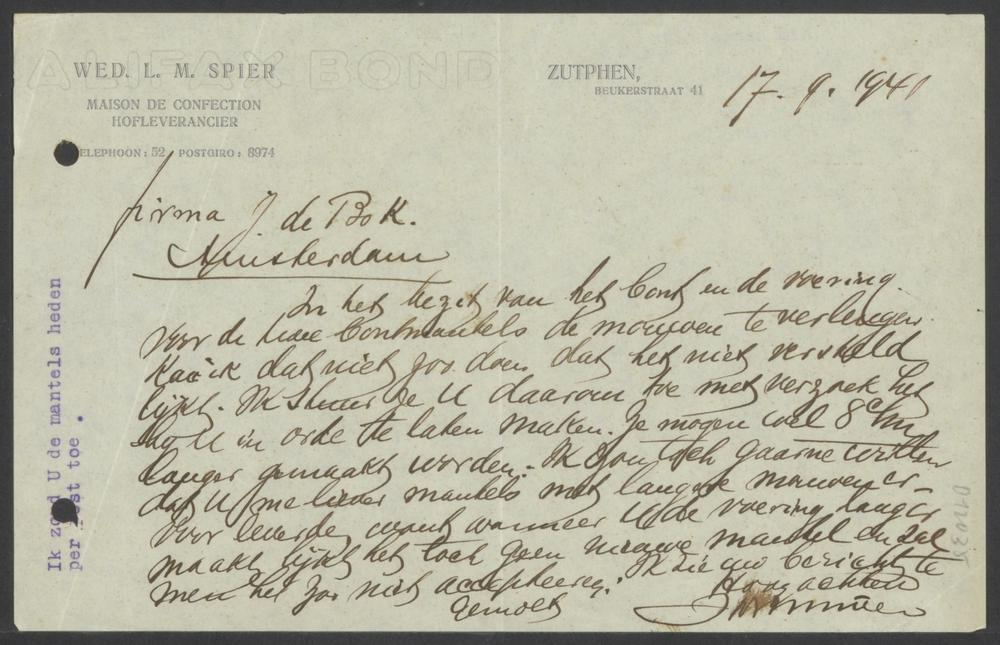 ALIFAX BOND
WED. L. M. SPIER
MAISON DE CONFECTION
HOFLEVERANCIER
ELEPHOON: 52 POSTGIRO: 8974
ZUTPHEN,
BEUKERSTRAAT 41
17. 9. 1941
firma J. de Bok.
Amsterdam
In het bezit van het bont en de voering.
voor de twee bontmantels de mouwen te verlengen
kan ik dat niet zoo doen dat het niet versteld
lijkt. Ik stuur ze U daarom toe met verzoek het
U in orde te laten maken. Je mogen wel 8 cm
langer gemaakt worden. Ik zou toch gaarne willen
dat U me liever mantels met langere mouwen er-
voor leverde, want wanneer U de voering langer
maakt lijkt het toch geen nieuwe mantel en zal
men het zoo niet accepteeren. Ik zie uw bericht te
gemoet
Hoogachtend
Ik zo d U de mantels heden
per st toe .